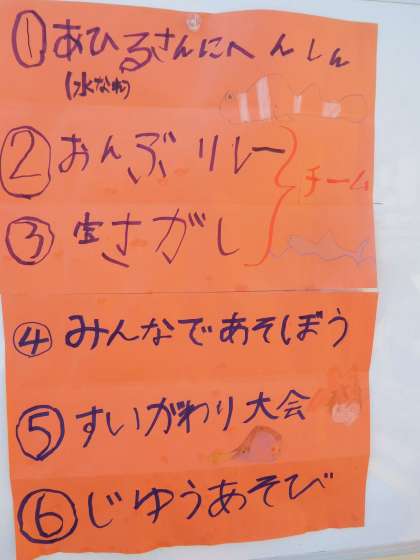 ①あひるさんにへんしん
(水なれ)
②おんぶリレー
チーム
③宝さがし
④みんなであそぼう
⑤すいかわり大会
⑥じゆうあそび